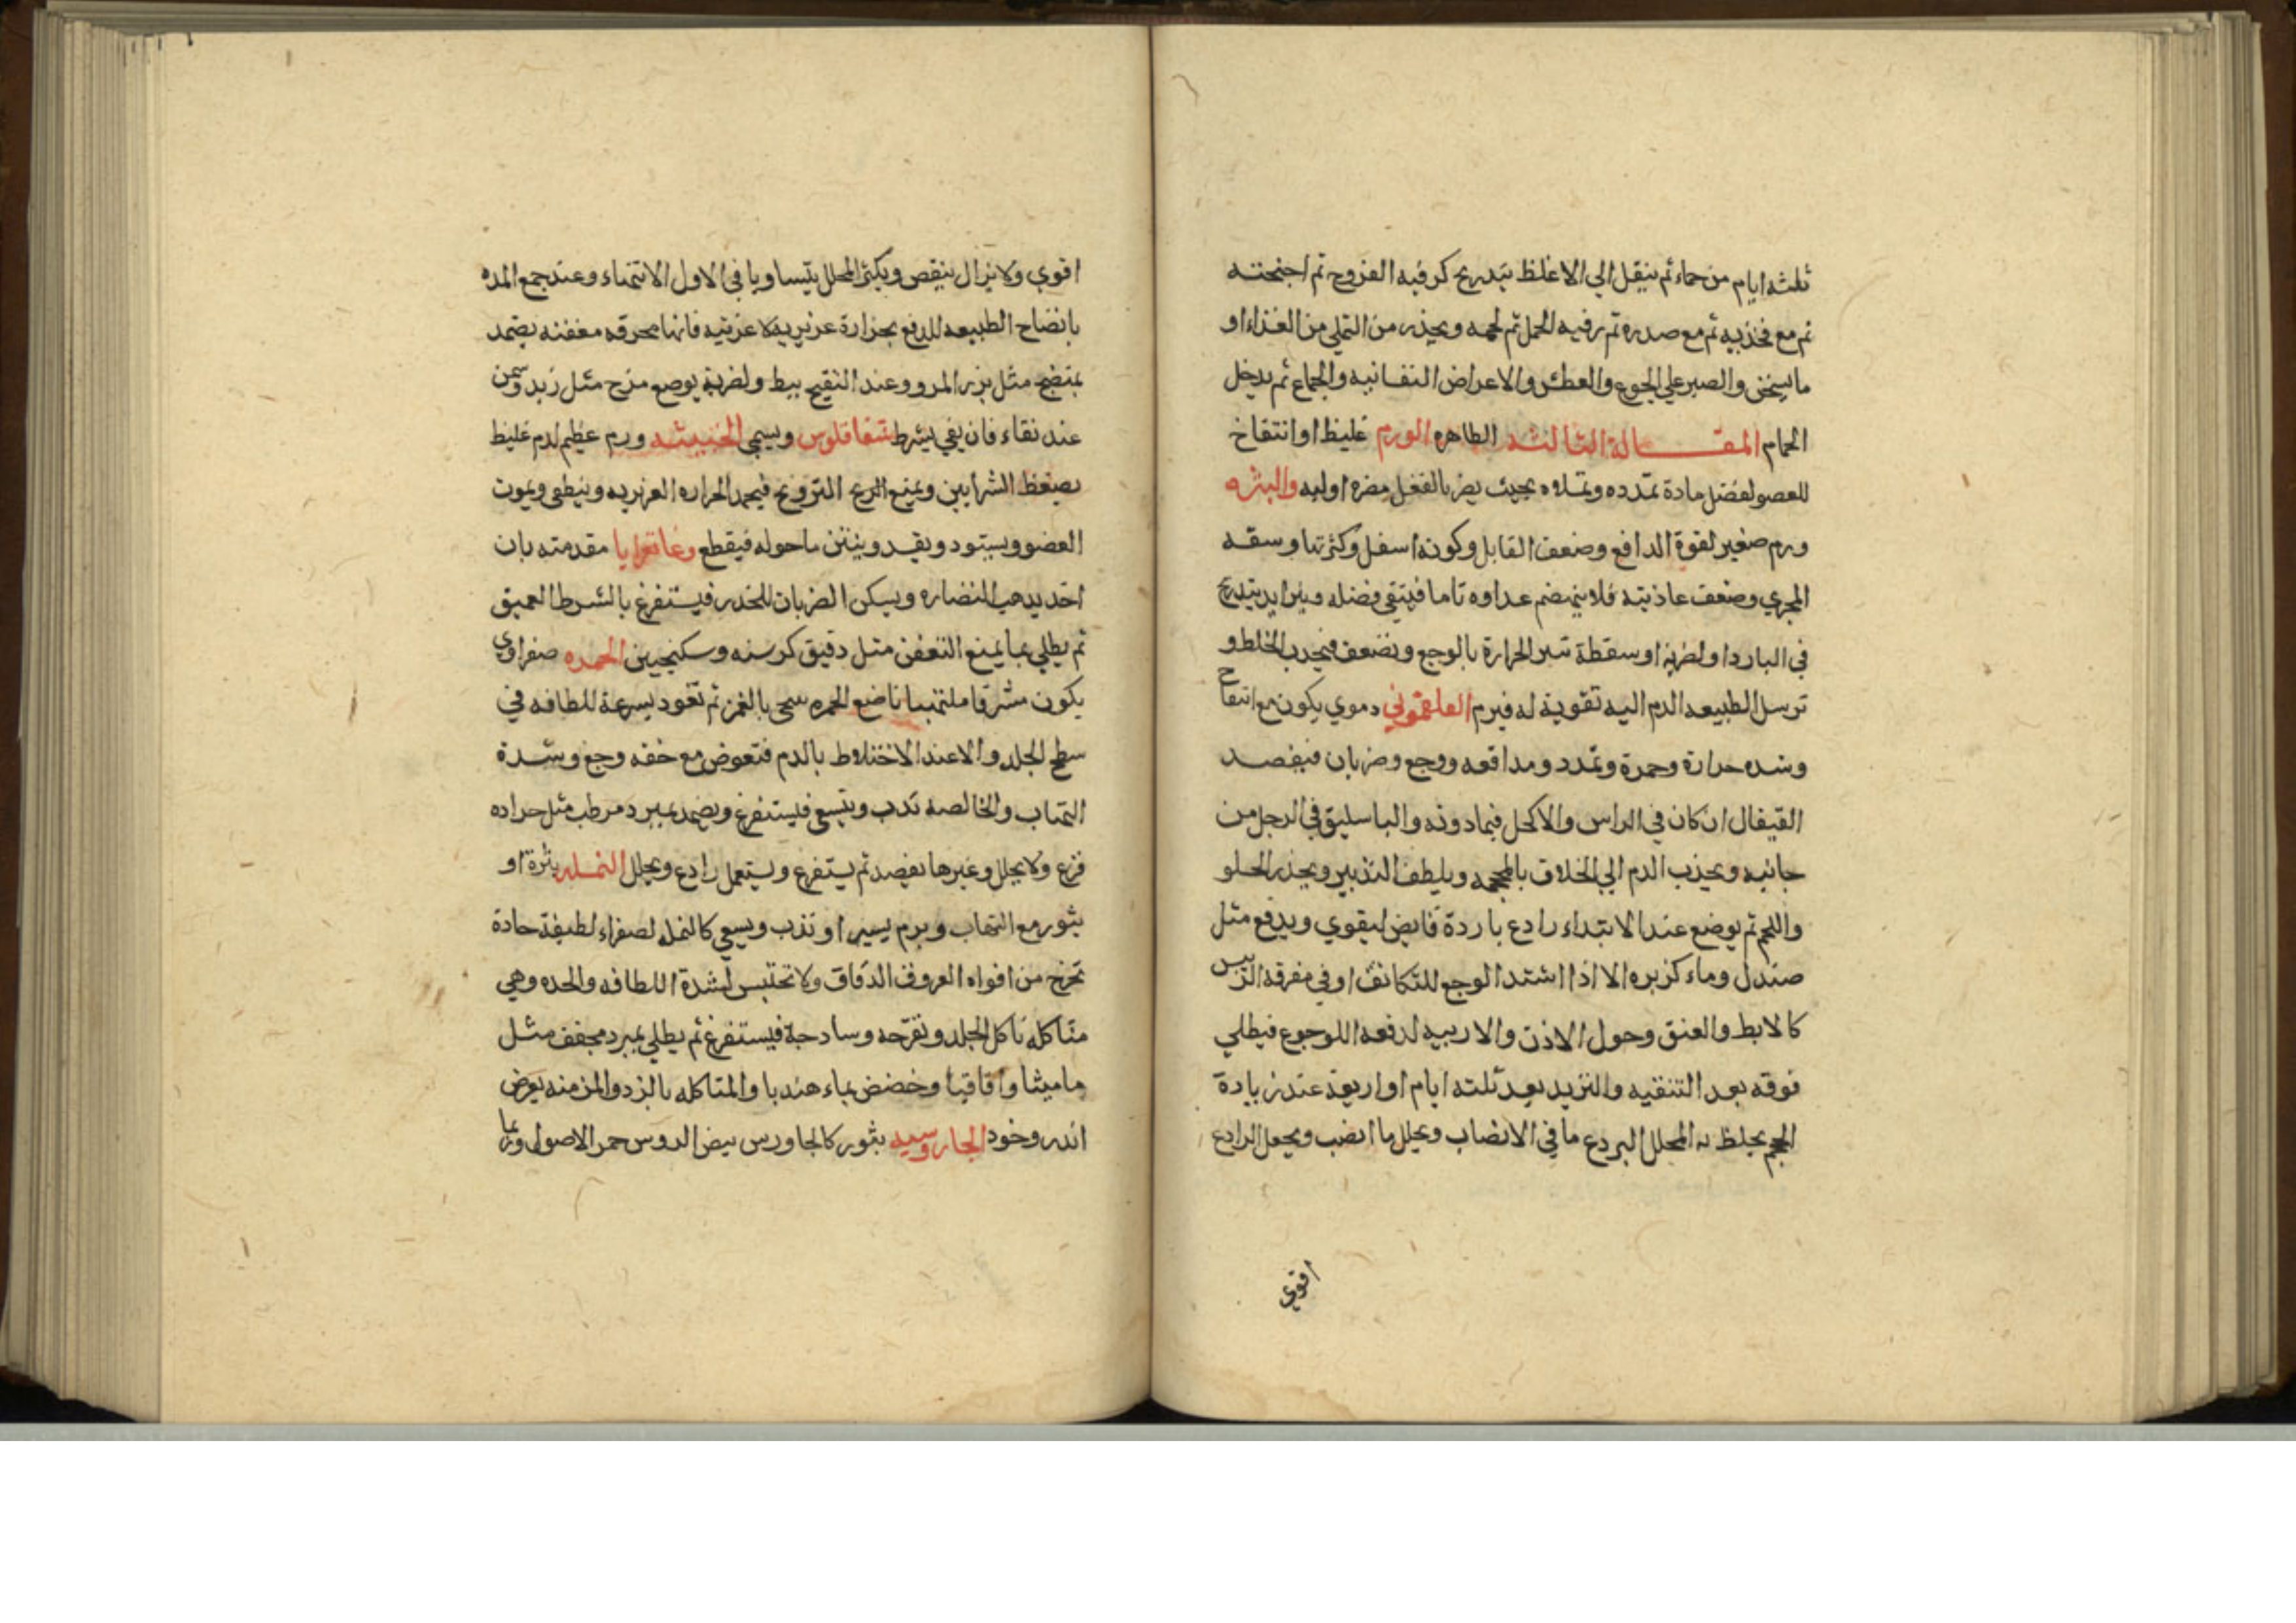 ثلثه ايام من حماء ثم ينقل الي الاغلظ بتدريج كرفبه الفزوج ثم اجنحته
ثم مع فخذيه ثم مع صدره ثم رفيه الحمل ثم لحمه ويحذر من التملي من الغذاء او
ما يسخن والصبر علي الجوع والعطش والاعراض النفسانيه والجماع ثم يدخل
الحمام المقاله الثالثه الطاهره الورم غليظ او انتفاخ
للعضو لفضل مادة تمدده وتملاه بحيث يضر بالفعل مضره اوليه والبثره
ورم صغير لقوة الدافع وضعف القابل وكونه اسفل وكثرتها وسقه
المجري وضعف عاذيته فلا ينهضم عداوه تاما فيبقي فضله ويزايد بتدريج
في البارد او لضربة او سقطة تثير الحرارة بالوجع وتضعف فيجذب الخلط و
ترسل الطبيعه الدم اليه تقوية له فيرم الفلغموني دموي يكون مع انتفاخ
وشده حرارة وحمرة وتمدد ومدافعه ووجع وضربان فيفصد
القيفال ان كان في الراس والاكحل فيما دونه والباسليق في الرجل من
جانبه ويجذب الدم الي الخلاف بالمحجمه ويلطف التدبير ويحذر الحلو
واللحم ثم يوضع عند الابتداء رادع باردة قابض ليقوي ويدفع مثل
صندل وماء كزبره الا اذا اشتد الوجع للتكاثف او في مفرقه الرييس
كالابط والعنق وحول الاذن والاربيه لدفعه اللوجوع فيطلي
فوقه بعد التنقيه والتزيد بعد ثلثه ايام او اربعة عند زيادة
الحجم يخلط به المحلل ليردع ما في الانصاب ويحلل ما انصب ويجعل الرادع
اقوي
اقوي ولا يزال ينقص ويكثر المحلل يتساويا في الاول الانتهاء وعند جمع المده
بانضاج الطبيعه للدفع بحرارة عزيزية لا غريبه فانها محرقه معفنه يضمد
بمنضج مثل بزر المرو وعند التقيح يبط ولضربة يوضع مزح مثل زبد وسمن
عند نقاء فان بقي يشرط شقاقلوس ويسمي الخبيثه ورم عظيم لدم غليظ
يضغط الشرايين ويمنع الريح التروح فيجمد الحراره الغريزيه وينطفي ويموت
العضو ويسود ويفسد وينتن ماحوله فيقطع وغانغرايا مقدمته بان
اخذ يذهب النضاره ويسكن الضربان للخدر فيستفرغ بالشرط العميق
ثم يطلي بما يمنع التعفن مثل دقيق كرسنه وسكنجبين الحمره صفراوي
يكون مشرقا ملتهبا ناصع الحمره سحي بالغمز ثم تعود بسرعة للطافه في
سطح الجلد والاعند الاختلاط بالدم فتعوض مع خفه وجع وشدة
التهاب والخالصه تدب وتسعي فليستفرغ ويضمد بمبرد مرطب مثل حراده
قرع ولا يحلل وغيرها يفصد ثم يستفرغ ويستعمل رادع ويحلل النمله بثرة او
بثور مع التهاب وورم يسير او تدب ويسعي كالنمله لصفراء لطيفة حادة
تخرج من افواه العروق الدقاق ولا تحتبس لشدة اللطافه والحده وهي
متاكله تاكل الجلد وتقرحه وساذجة فيستفرغ ثم يطلي بمبرد مجفف مثل
ماميثا واقاقيا وحضض بماء هندبا والمتاكله بالزد والمزمنه بعرض
اندروخود الجاروسيه بثور كالجاورس بيض الروس حمر الاصول وربما